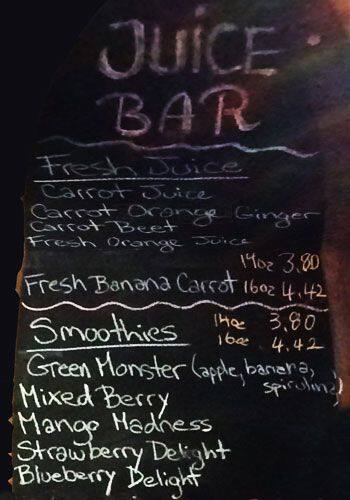 JUICE
BAR
Fresh Juice
Carrot Juice
Carrot Orange Ginger
Carrot Beet
Fresh Orange Juice
14oz 3.80
Fresh Banana Carrot 16oz 4.42
Smoothies 14oz 3.80
16oz 4.42
Green Monster (apple, banana,
spirulina)
Mixed Berry
Mango Madness
Strawberry Delight
Blueberry Delight